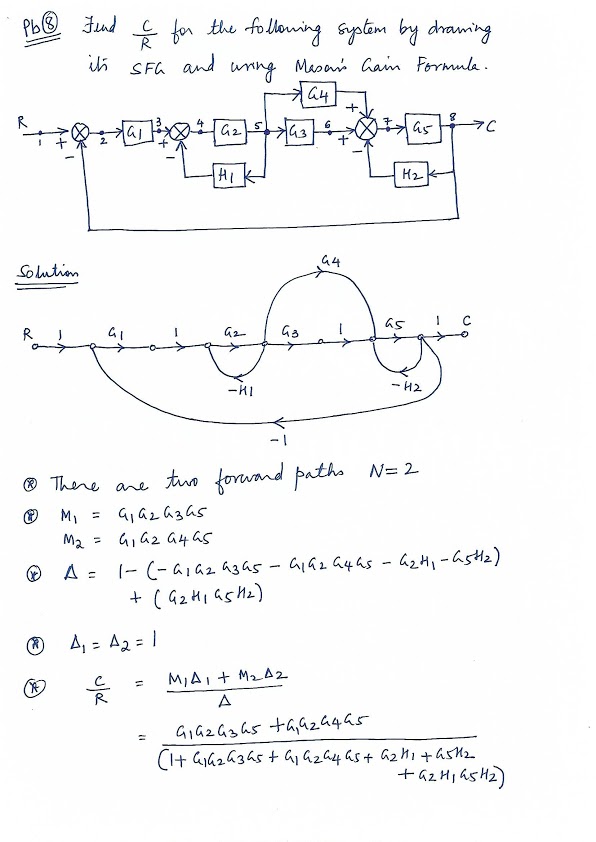 Pb⑧ Find C/R for the following system by drawing
its SFG and using Mason's Gain Formula.
G4
R 1 + - 2 G1 3 + - 4 G2 5 G3 6 + + - 7 G5 8 C
H1 H2
Solution
G4
R 1 G1 1 G2 G3 1 G5 1 C
-H1 -H2
-1
⊛ There are two forward paths N=2
⊛ M1 = G1G2G3G5
M2 = G1G2G4G5
⊛ Δ = 1-(-G1G2G3G5 - G1G2G4G5 - G2H1 - G5H2)
+ (G2H1G5H2)
⊛ Δ1 = Δ2 = 1
⊛ C/R = M1Δ1 + M2Δ2
Δ
= G1G2G3G5 + G1G2G4G5
(1+ G1G2G3G5 + G1G2G4G5 + G2H1 + G5H2
+ G2H1G5H2)